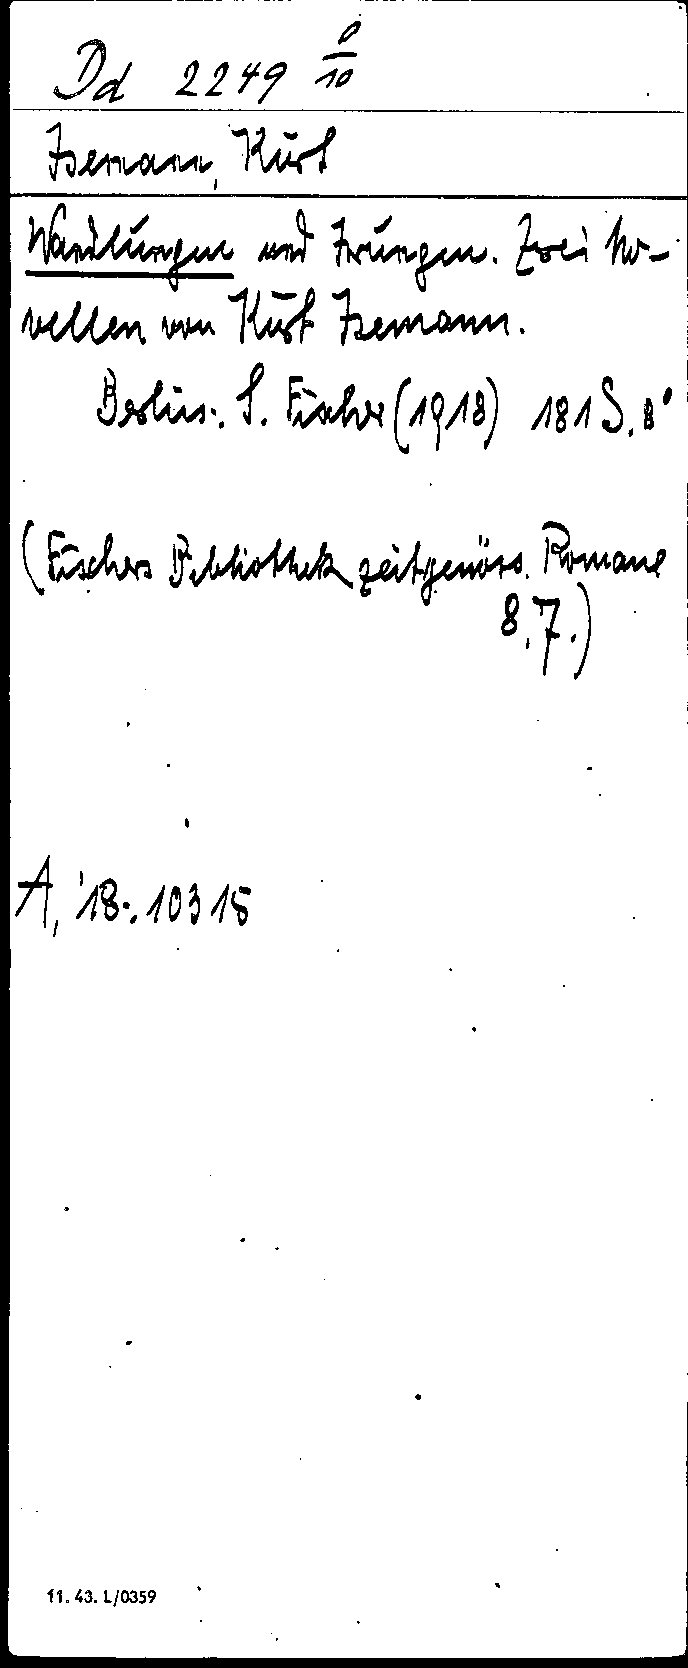 Dd 2249 0/10
Isemann, Kurt
Wandlungen und Irrungen. Zwei No-
vellen von Kurt Isemann.
Berlin: S. Fischer (1918) 181 S. 8°
(Fischers Bibliothek zeitgenöss. Romane
8,7.)
A, '18:. 10315
11. 43. L/0359